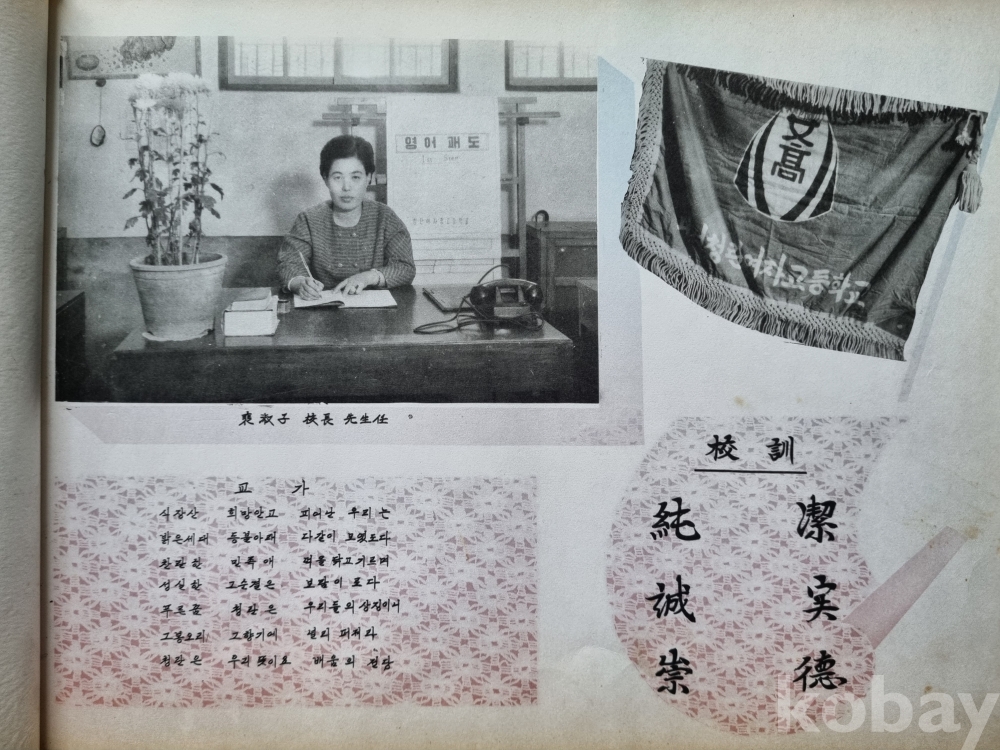 영어괘도
女高
청란여자고등학교
裵淑子 校長 先生任
교 가
식장산 희망안고 피어난 우리는
밝은세대 등불아래 다같이 모였도다
찬란한 민족애 꺽을 닦고기르며
성실한 그순결은 보람이로다
푸른꿈 청란은 우리들의 상징이서
그봉오리 그향기에 널리 퍼져라
청란은 우리 뜻이요 배움의 전당
校訓
純潔
誠実
崇德
kobay